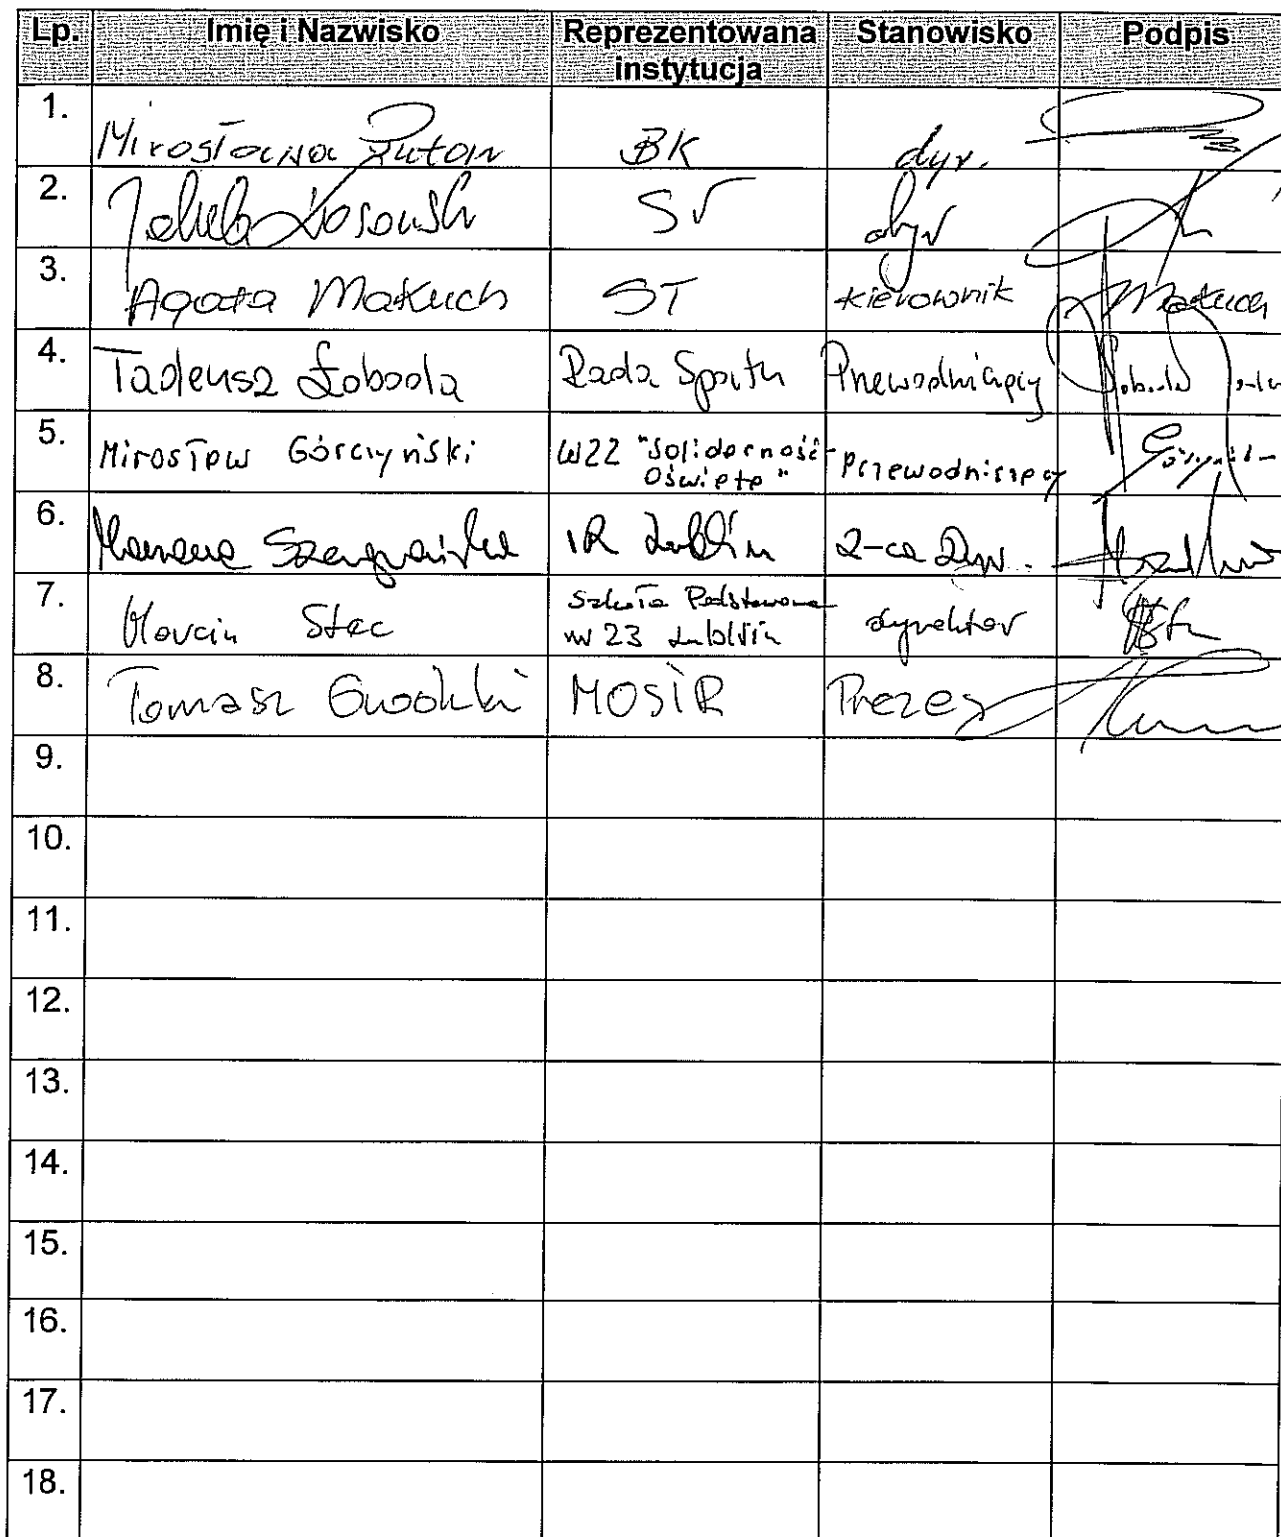 Lp. Imię i Nazwisko Reprezentowana instytucja Stanowisko Podpis
1. Mirosława Puton BK dyr.
2. Jakub Kosowski ST dyr
3. Agata Makuch ST kierownik Makuch
4. Tadeusz Łoboda Rada Sportu Przewodniczący
5. Mirosław Górczyński WZZ "Solidarność-Oświata" Przewodniczący
6. IR Lublin Z-ca Dyr.
7. Marcin Stec Szkoła Podstawowa nr 23 Lublin dyrektor
8. Tomasz MOSiR Prezes
9.
10.
11.
12.
13.
14.
15.
16.
17.
18.